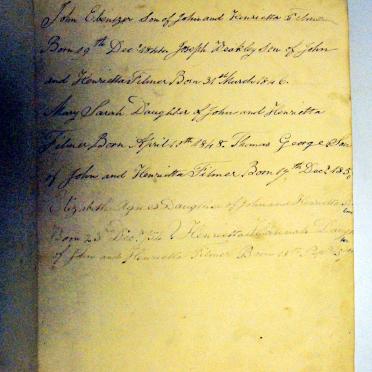 John Ebenezer Son of John and Henrietta Filmer
Born 19th Decr 1844 Joseph Weakley Son of John
and Henrietta Filmer Born 31st March 1846.
Mary Sarah Daughter of John and Henrietta
Filmer Born April 10th 1848. Thomas George Son
of John and Henrietta Filmer Born 19th Decr 1850
Elizabeth Agnes Daughter of John and Henrietta
Born 23rd Decr Henrietta Hannah Daughter
of John and Henrietta Filmer Born 18th Sepr